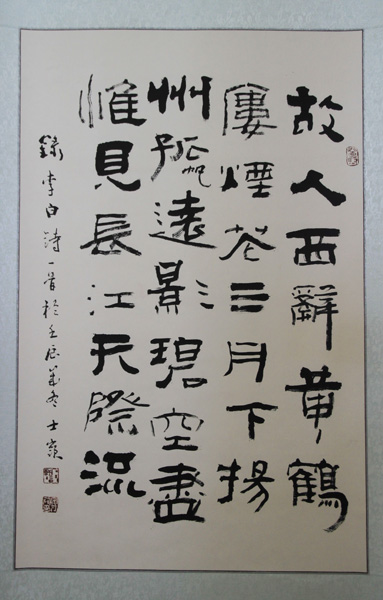 故人西辭黃鶴
廔煙花三月下揚
州孤帆遠影碧空盡
惟見長江天際流
錄李白詩一首於壬辰冬士